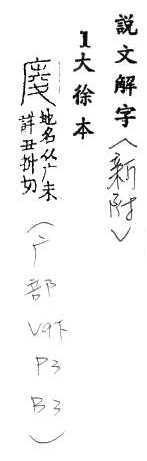 說文解字〈新附〉
1大徐本
庱
地名从广未
詳丑抍切
(广部 V9下 P3 B3)